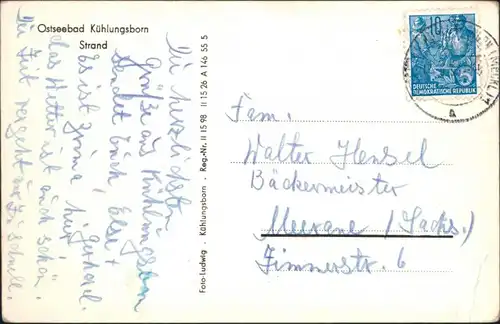 Ostseebad Kühlungsborn
Strand
Die herzlichsten
Grüße aus Kühlungsborn
sendet Euch Else +
Es ist prima hier,
das Wetter ist auch schön.
Die Zeit vergeht nur zu schnell.
Foto-Ludwig · Kühlungsborn · Reg.-Nr. II 15 98 II 15 26 A 146 55 5
DEUTSCHE
DEMOKRATISCHE REPUBLIK
5
a
Fam.
Walter Hensel
Bäckermeister
Meerane (Sachs.)
Zimmerstr. 6